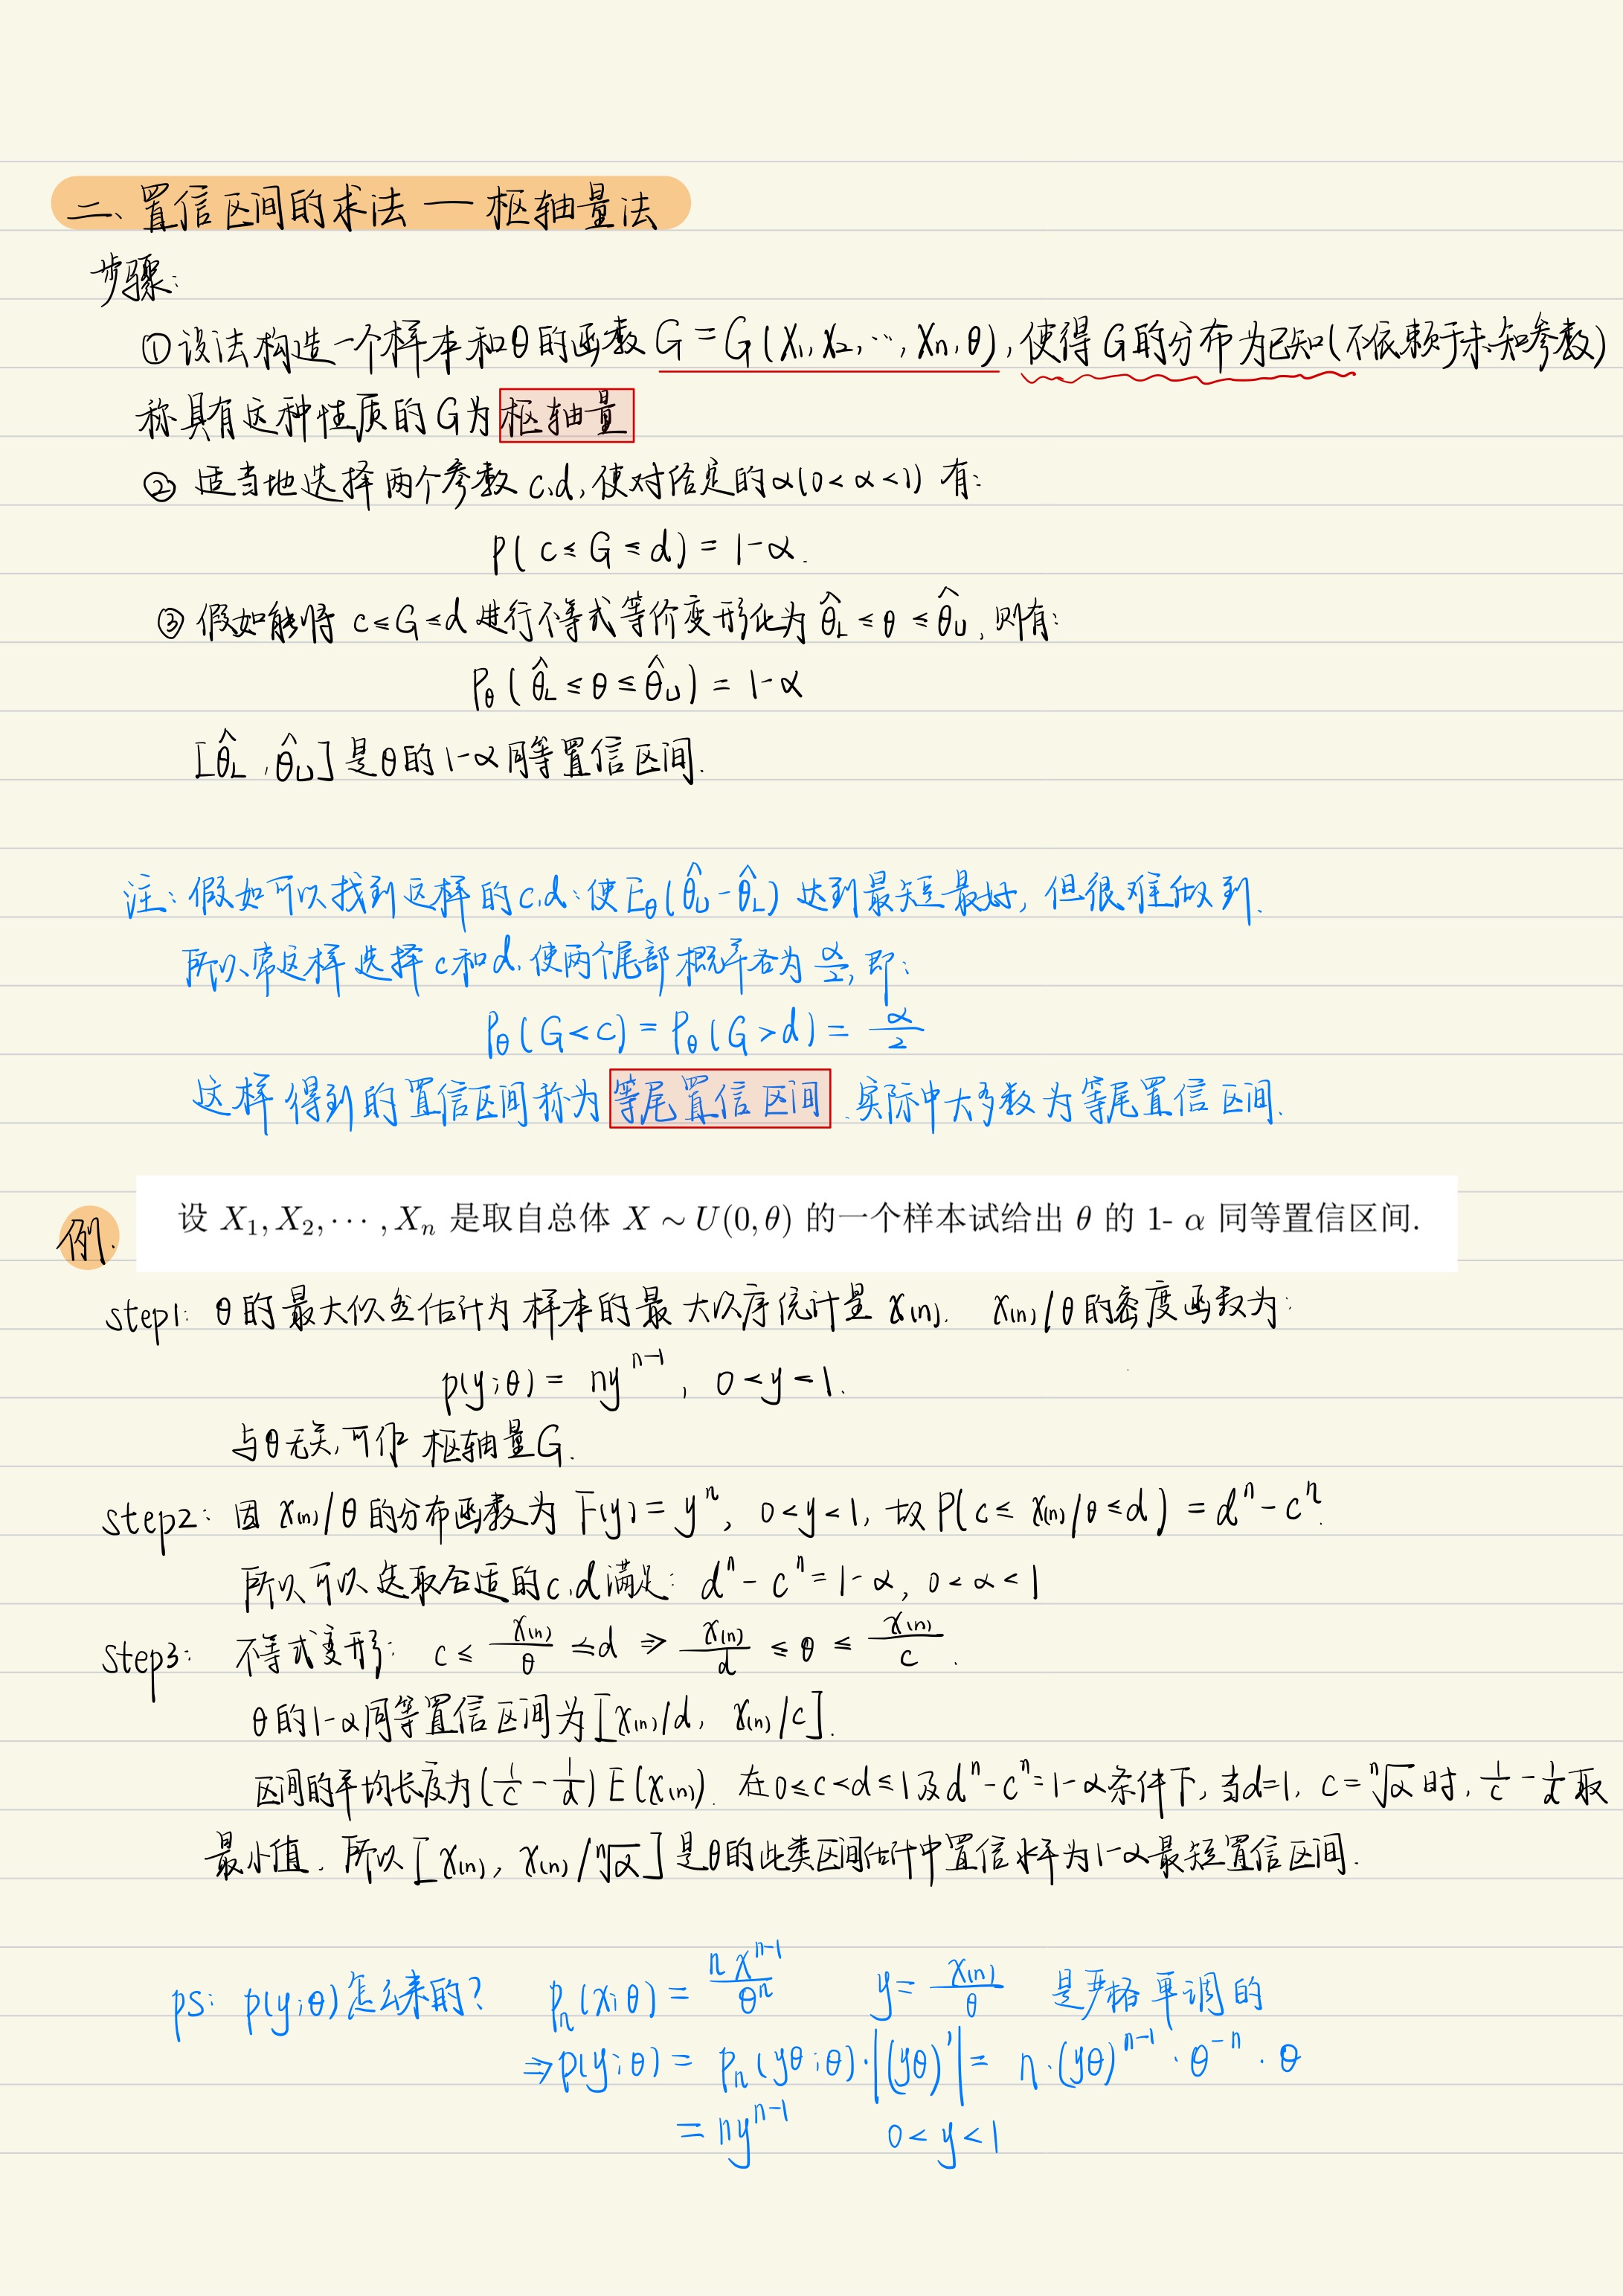 二、置信区间的求法 — 枢轴量法
步骤:
①设法构造一个样本和θ的函数 G = G(X₁, X₂, ⋯, Xn, θ), 使得 G 的分布为已知(不依赖于未知参数)
称具有这种性质的 G为枢轴量
② 适当地选择两个参数 c,d, 使对给定的 α(0<α<1) 有:
P( c ≤ G ≤ d ) = 1-α.
③ 假如能将 c≤G≤d 进行不等式等价变形化为 θ̂_L ≤ θ ≤ θ̂_U, 则有:
P_θ ( θ̂_L ≤ θ ≤ θ̂_U ) = 1-α
[θ̂_L , θ̂_U] 是θ的 1-α 同等置信区间.
注: 假如可以找到这样的 c,d: 使 E_θ(θ̂_U - θ̂_L) 达到最短最好, 但很难做到.
所以常这样选择 c和d, 使两个尾部概率各为 α/2, 即:
P_θ (G<c) = P_θ (G>d) = α/2
这样得到的置信区间称为等尾置信区间. 实际中大多数为等尾置信区间.
例. 设 X₁, X₂, ⋯ , Xn 是取自总体 X ∼ U(0, θ) 的一个样本试给出 θ 的 1- α 同等置信区间.
step1: θ的最大似然估计为样本的最大次序统计量 x₍n₎. x₍n₎/θ 的密度函数为:
p(y;θ) = nyⁿ⁻¹, 0<y<1.
与θ无关,可作枢轴量G.
step2: 因 x₍n₎/θ 的分布函数为 F(y) = yⁿ, 0<y<1, 故 P( c ≤ x₍n₎/θ ≤ d ) = dⁿ - cⁿ.
所以可以选取合适的c,d满足: dⁿ - cⁿ = 1-α, 0<α<1
step3: 不等式变形: c ≤ x₍n₎/θ ≤ d ⇒ x₍n₎/d ≤ θ ≤ x₍n₎/c.
θ的1-α同等置信区间为 [x₍n₎/d, x₍n₎/c].
区间的平均长度为 (1/c - 1/d) E(x₍n₎). 在 0≤c<d≤1及dⁿ-cⁿ=1-α条件下, 当d=1, c=ⁿ√α 时, 1/c - 1/d 取
最小值. 所以 [x₍n₎, x₍n₎/ⁿ√α] 是θ的此类区间估计中置信水平为1-α最短置信区间.
ps: p(y;θ)怎么来的? pn(x;θ) = nxⁿ⁻¹/θⁿ y = x₍n₎/θ 是严格单调的
⇒ p(y;θ) = pn(yθ;θ)·|(yθ)'| = n·(yθ)ⁿ⁻¹·θ⁻ⁿ·θ
= nyⁿ⁻¹ 0<y<1